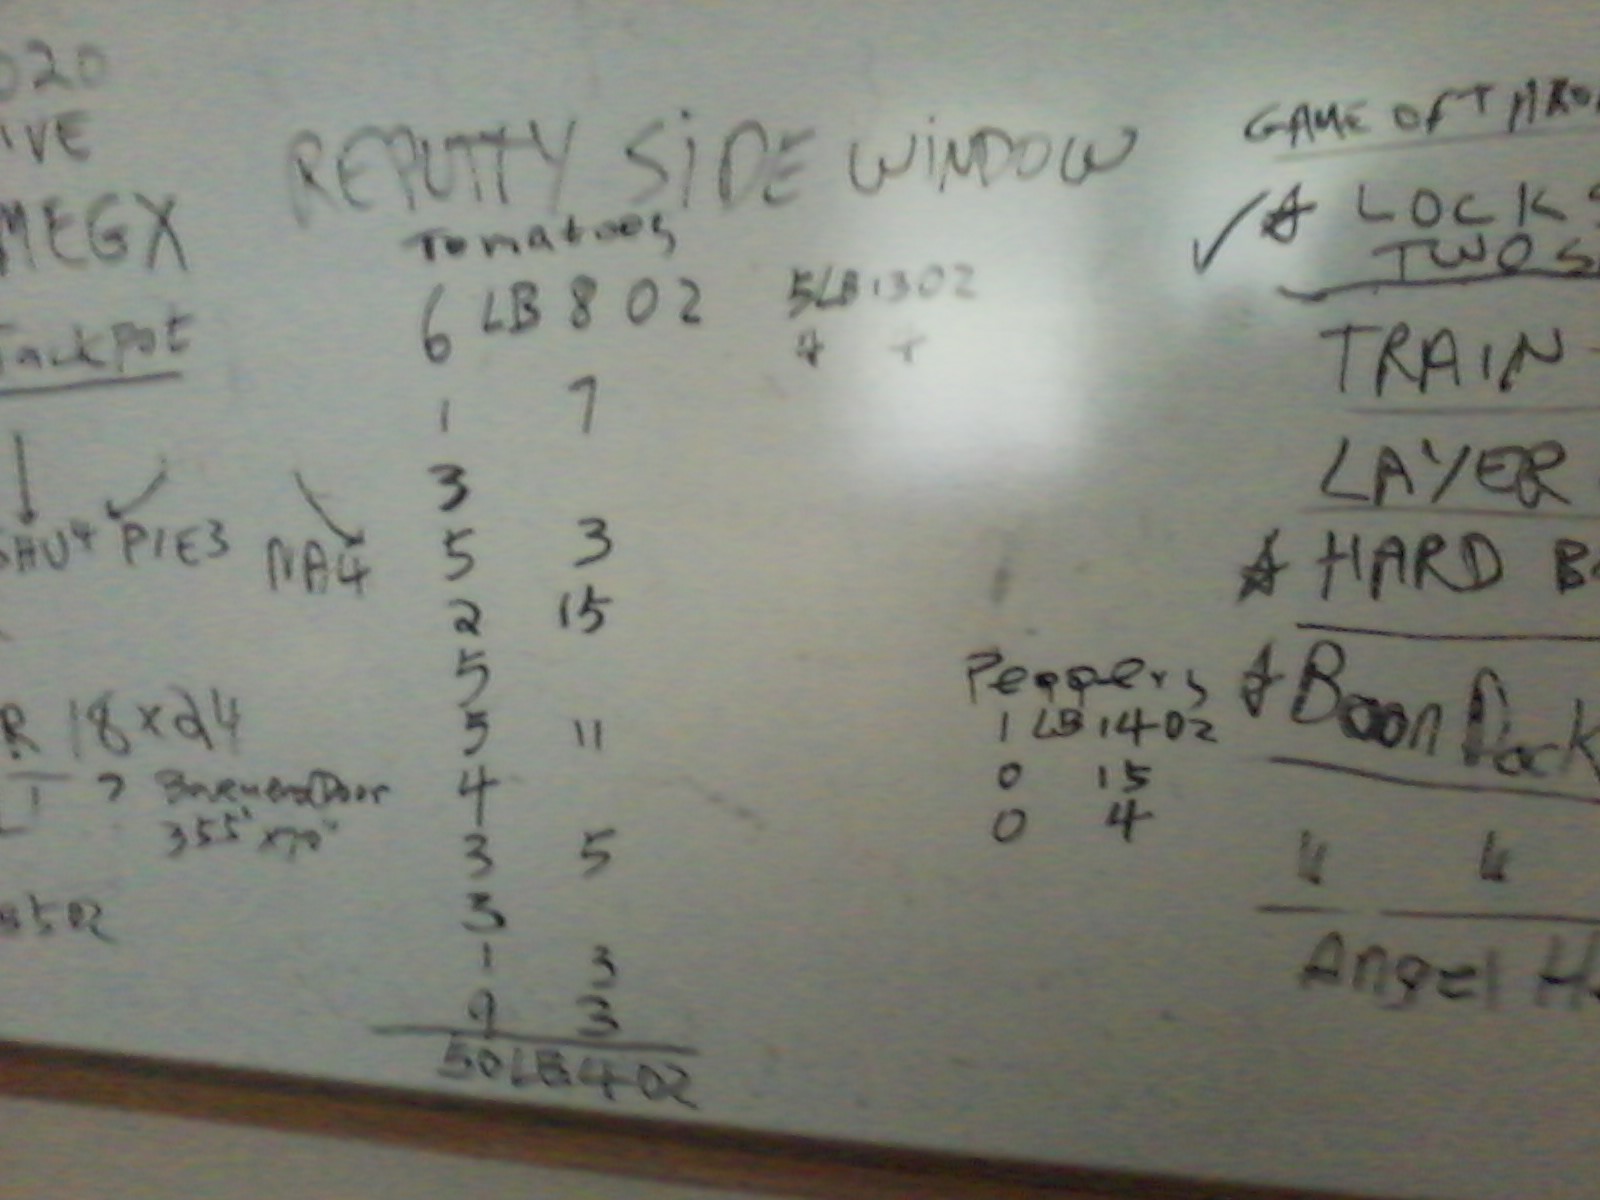 020
IVE
MEGX
JackPot
PIE3 NA4
18x24
355" x70"
502
REPUTTY SIDE WINDOW
Tomatoes
6 LB 8 OZ
1 7
3
5 3
2 15
5
5 11
4
3 5
3
1 3
9 3
50 LB 4 OZ
5LB 13 OZ
Peppers
1 LB 14 OZ
0 15
0 4
GAME OF THRO
LOCK S
TWO S
TRAIN
LAYER
HARD B
Boon Dock
" "
Angel H